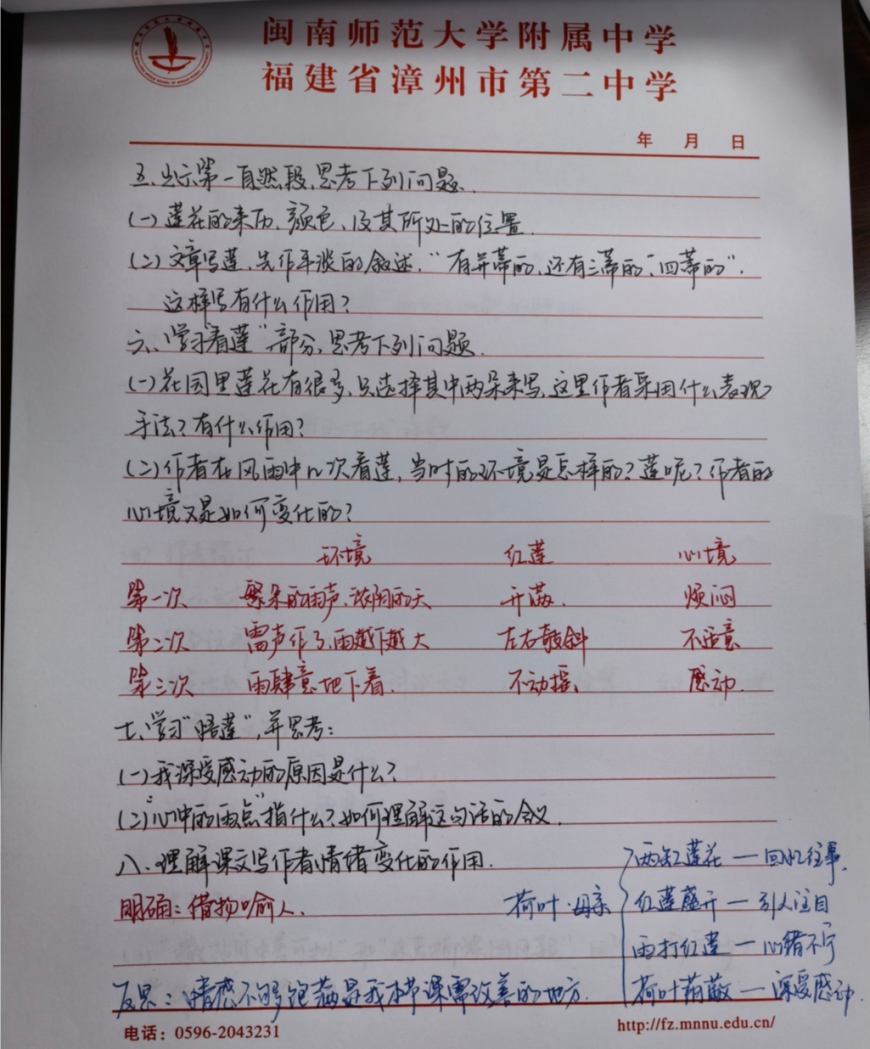 闽南师范大学附属中学
福建省漳州市第二中学
年 月 日
五、出示第一自然段,思考下列问题.
(一)莲花的来历、颜色、及其所处的位置
(二)文章写莲,先作平淡的叙述,“有并蒂的,还有三蒂的、四蒂的”.
这样写有什么作用?
六、学习“看莲”部分,思考下列问题.
(一)花园里莲花有很多,只选择其中两朵来写,这里作者采用什么表现
手法?有什么作用?
(二)作者在风雨中几次看莲,当时的环境是怎样的?莲呢?作者的
心境又是如何变化的?
环境 红莲 心境
第一次 繁杂的雨声、浓阴的天 开满. 烦闷
第二次 雷声作了,雨越下越大 左右欹斜 不适意
第三次 雨肆意地下着. 不动摇、 感动.
七、学习“悟莲”,并思考:
(一)我深受感动的原因是什么?
(二)“心中的雨点”指什么?如何理解这句话的含义.
八、理解课文写作者情绪变化的作用.
明确:借物喻人.
荷叶·母亲
两缸莲花—回忆往事.
红莲盛开—引人注目
雨打红莲—心绪不宁
荷叶荫蔽—深受感动.
反思:情感不够饱满是我本节课需改善的地方.
电话:0596-2043231
http://fz.mnnu.edu.cn/